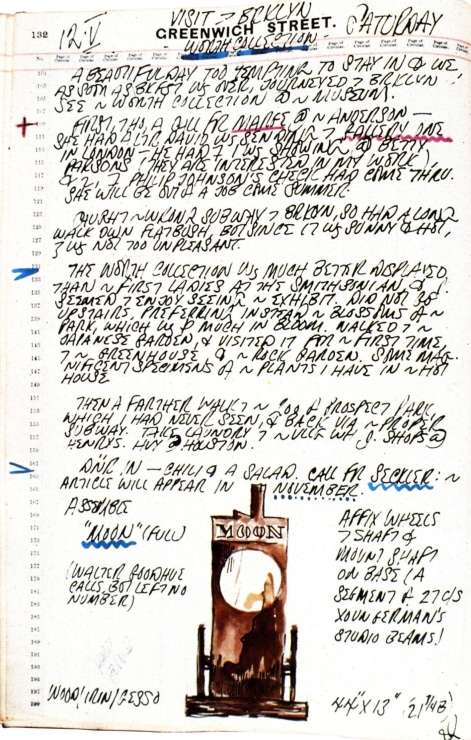 132
12·V
VISIT → BRKLYN
GREENWICH STREET.
SATURDAY
WORTH COLLECTION
A BEAUTIFUL DAY TOO TEMPTING TO STAY IN & WE,
AS SOON AS BKFST WS OVER, JOURNEYED → BRKLYN
SEE ~ WORTH COLLECTION @ ~ MUSEUM.
FIRST, THO, A CALL FR @ ~ ANDERSON —
SHE HAD
IN LONDON — HE HAD IN ~ SHOWING @ BETTY
PARSONS & THEY ARE INTERESTED IN MY WORK),
& PHILIP JOHNSON'S CHECK HAD COME THRU.
SHE WILL BE OUT A JOB COME SUMMER.
~ WRONG SUBWAY → BRKLYN, SO HAD A LONG
WALK DOWN FLATBUSH, BUT SINCE IT WS SUNNY & HOT,
WS NOT TOO UNPLEASANT.
THE WORTH COLLECTION WS MUCH BETTER DISPLAYED
THAN ~ FIRST LADIES AT THE SMITHSONIAN &
SEEMED → ENJOY SEEING ~ EXHIBIT. DID NOT GO
UPSTAIRS, PREFERRING INSTEAD ~ BLOSSOMS OF ~
PARK, WHICH WS MUCH IN BLOOM. WALKED → ~
JAPANESE GARDEN, & VISITED IT FOR ~ FIRST TIME,
→ ~ GREENHOUSE & ~ ROCK GARDEN. SOME MAG-
NIFICENT SPECIMENS OF ~ PLANTS I HAVE IN ~ HOT
HOUSE
THEN A FARTHER WALK → ~ ZOO OF PROSPECT PARK,
WHICH I HAD NEVER SEEN, & BACK VIA ~ PROPER
SUBWAY. TAKE LAUNDRY → ~ VLLGE WF. J. SHOPS @
HENRYS. HVY HOUSTON.
DNR IN — CHILI & A SALAD. CALL FR SECKLER: ~
ARTICLE WILL APPEAR IN NOVEMBER.
ASSEMBLE
"MOON" (FULL)
(WALTER GOODHUE
CALLS BUT LEFT NO
NUMBER)
MOON
AFFIX WHEELS
→ SHAFT &
MOUNT SHAFT
ON BASE (A
SEGMENT OF 27 C/S
YOUNGERMAN'S
STUDIO BEAMS)
WOOD/IRON/GESSO
44" X 13"